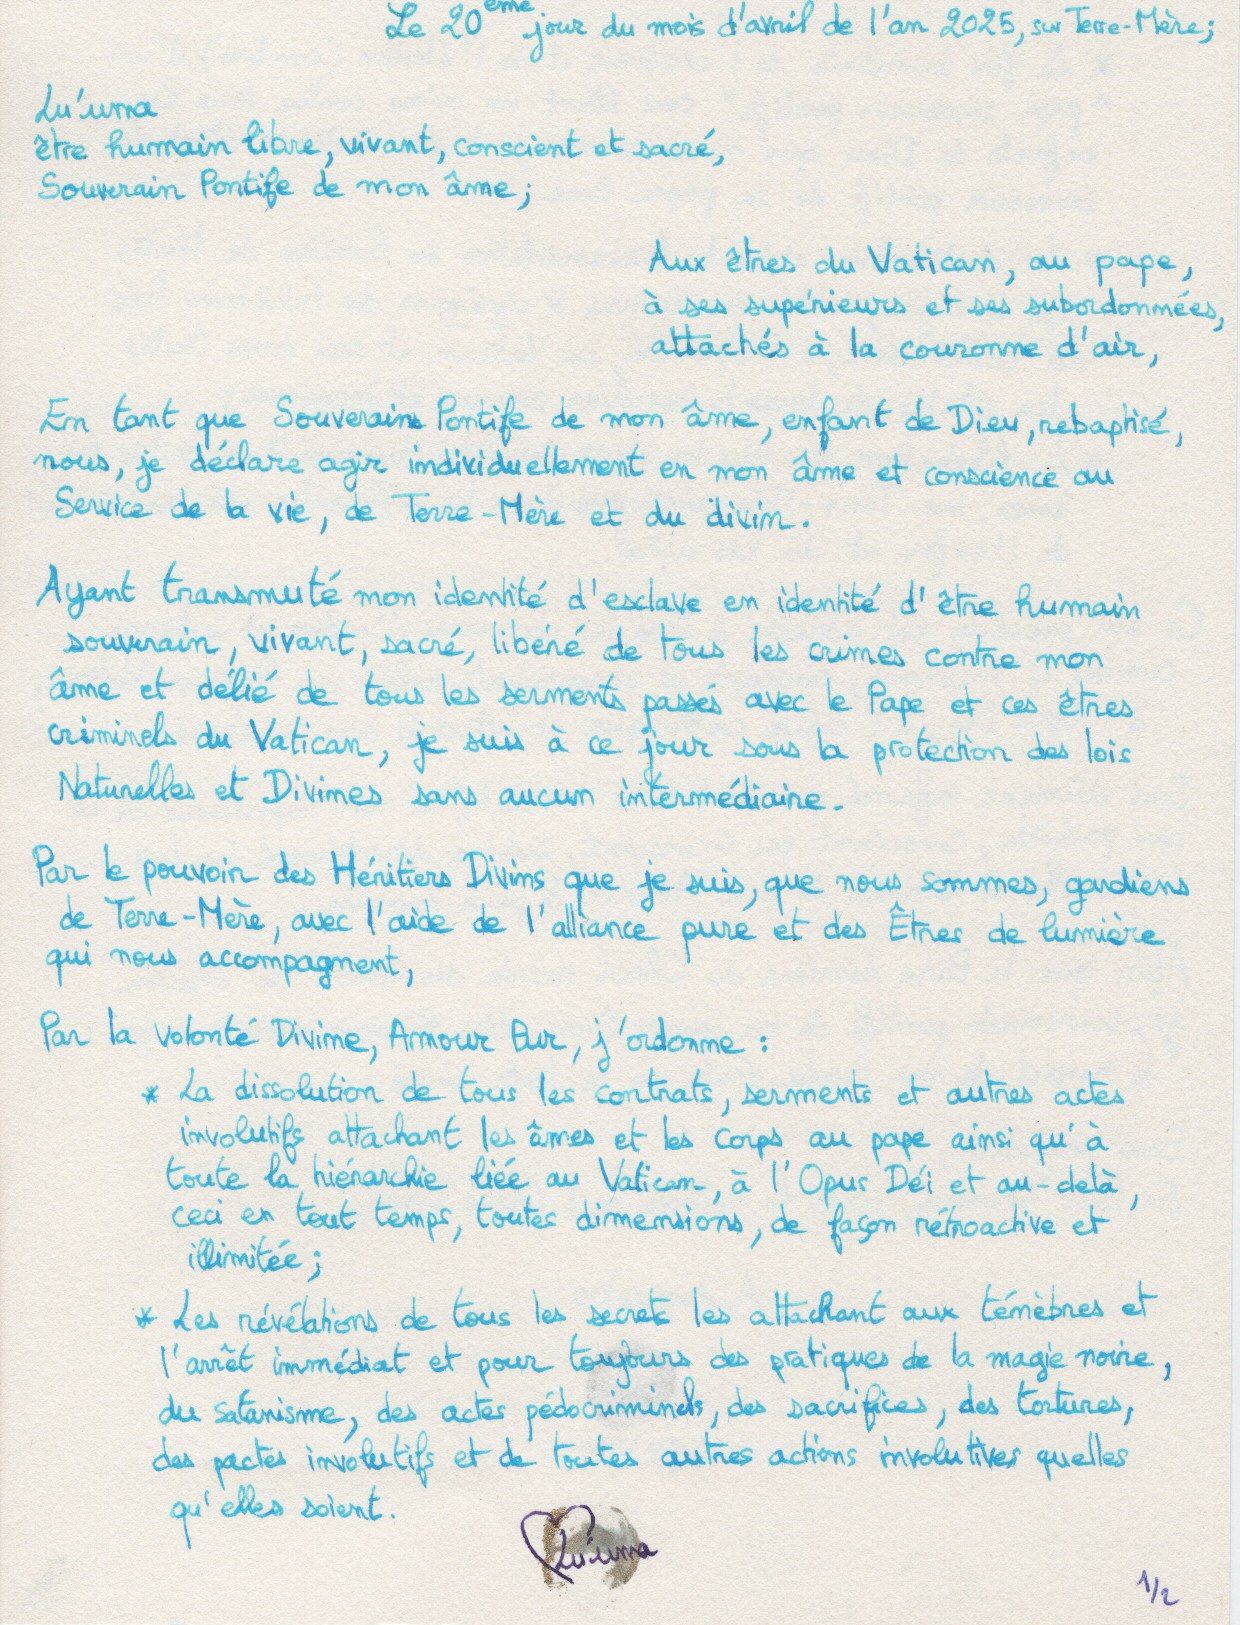 Le 20ème jour du mois d'avril de l'an 2025, sur Terre-Mère;
Lu'uma
être humain libre, vivant, conscient et sacré,
Souverain Pontife de mon âme;
Aux êtres du Vatican, au pape,
à ses supérieurs et ses subordonnées,
attachés à la couronne d'air,
En tant que Souverain Pontife de mon âme, enfant de Dieu, rebaptisé,
nous, je déclare agir individuellement en mon âme et conscience au
Service de la vie, de Terre-Mère et du divin.
Ayant transmuté mon identité d'esclave en identité d'être humain
souverain, vivant, sacré, libéré de tous les crimes contre mon
âme et délié de tous les serments passés avec le Pape et ces êtres
criminels du Vatican, je suis à ce jour sous la protection des lois
Naturelles et Divines sans aucun intermédiaire.
Par le pouvoir des Héritiers Divins que je suis, que nous sommes, gardiens
de Terre-Mère, avec l'aide de l'alliance pure et des Êtres de lumière
qui nous accompagnent,
Par la volonté Divine, Amour Pur, j'ordonne :
* La dissolution de tous les contrats, serments et autres actes
involutifs attachant les âmes et les corps au pape ainsi qu'à
toute la hiérarchie liée au Vatican, à l'Opus Déi et au-delà,
ceci en tout temps, toutes dimensions, de façon rétroactive et
illimitée;
* Les révélations de tous les secrets les attachant aux ténèbres et
l'arrêt immédiat et pour toujours des pratiques de la magie noire,
du satanisme, des actes pédocriminels, des sacrifices, des tortures,
des pactes involutifs et de toutes autres actions involutives quelles
qu'elles soient.
Lu'uma
1/2